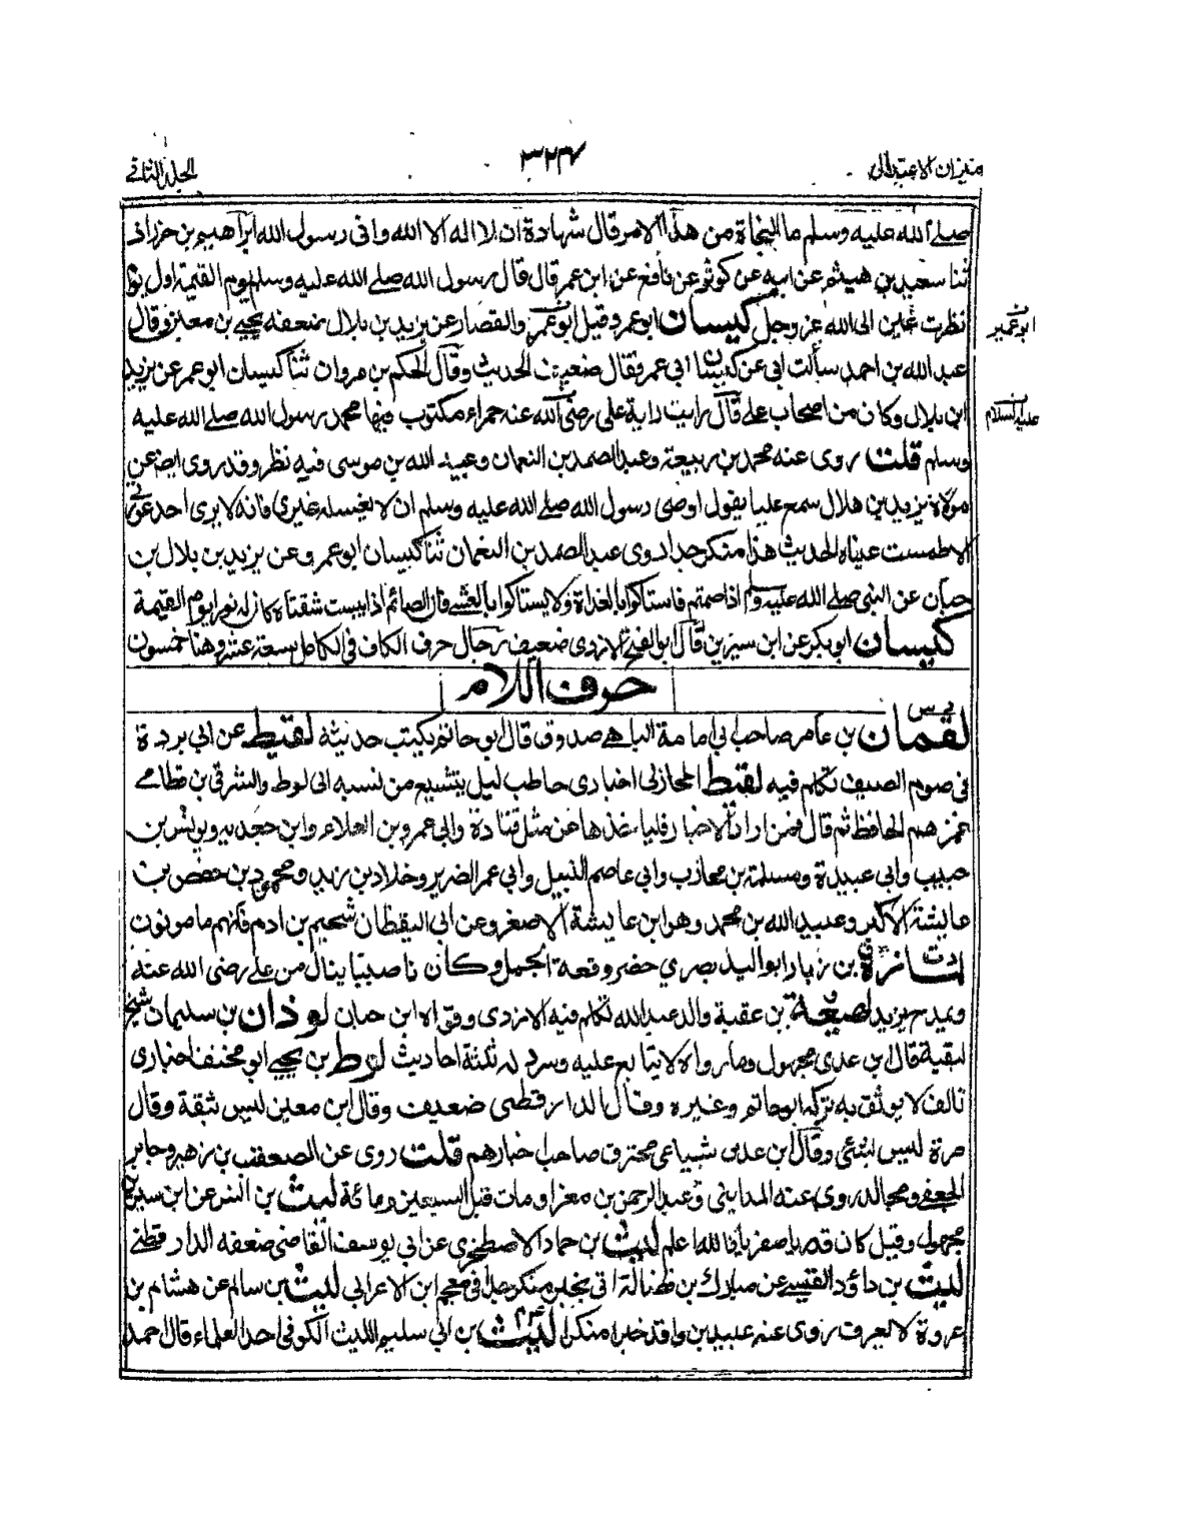 ميزان الاعتدال
الجلد الثاني
صلے الله عليه وسلم ما النجاة من هذا الامر قال شهادة ان لا اله الا الله واني رسول الله ابراهيم بن خرزاذ
ثنا سعيد بن هيثم عن ابيه عن كوثر عن نافع عن ابن عمر قال قال رسول الله صلے الله عليه وسلم يوم القيمة اول يوم
نظرت عين الى الله عز وجل كيسان ابو عمر وقيل ابو عمرو القصار عن يزيد بن بلال ضعفه يحيے بن معين وقال
ابو عمير
عبد الله بن احمد سألت ابي عن كيسان ابي عمر فقال ضعيف الحديث وقال الحكم بن مروان ثنا كيسان ابو عمر عن يزيد
ابن بلال وكان من اصحاب علے قال رايت راية علي رضي الله عنه حمراء مكتوب فيها محمد رسول الله صلے الله عليه
عليه السلام
وسلم قلت روى عنه محمد بن ربيعة وعبد الصمد بن النعمان وعبيد الله بن موسى فيه نظر وقد روى ايضا عن
مولاه يزيد بن هلال سمع عليا يقول اوصى رسول الله صلے الله عليه وسلم ان لا يغسله غيري فانه لا يرى احد عورتي
الا طمست عيناه الحديث هذا منكر جدا روى عبد الصمد بن النعمان ثنا كيسان ابو عمرو عن يزيد بن بلال بن
حبان عن النبي صلے الله عليه وسلم اذا صمتم فاستاكوا بالغداة ولا يستاكوا بالعشے فان الصائم اذا يبست شفتاه كان له نورا يوم القيمة
كيسان ابو بكر عن ابن سيرين قال ابو الفتح الازدى ضعيف رجال حرف الكاف في الكامل سبعة عشر وهنا خمسون
حرف اللام
لقمان بن عامر صاحب ابي امامة الباهلے صدوق قال ابو حاتم يكتب حديثه لقيط عن ابي بردة
في صوم الصيف تكلم فيه لقيط المحاربي اخبارى حاطب ليل يتشيع من نسبه الى لوط والشرقي بن قطامے
غمزهم الحافظ ثم قال فمن اراد الاخبار فلياخذها عن مثل قتادة وابي عمرو بن العلاء وابن جعدبه ويونس بن
حبيب وابي عبيدة ومسلمة بن محارب وابي عاصم النبيل وابي عمر الضرير وخلاد بن يزيد ومحمود بن حفص بن
عايشة الاكبر وعبيد الله بن محمد وهو ابن عايشة الاصغر وعن ابي اليقظان سحيم بن ادم فانهم مامونون
لمازة بن زبار ابو لبيد بصري حضر وقعة الجمل وكان ناصبيا ينال من علے رضى الله عنه
ويمدح يزيد لهيعة بن عقبة والد عبد الله تكلم فيه الازدى وقواه ابن حبان لوذان بن سليمان شيخ
لبقية قال ابن عدى مجهول وما رواه لا يتابع عليه وسرد له ثلثة احاديث لوط بن يحيے ابو مخنف اخبارى
تالف لا يوثق به تركه ابو حاتم وغيره وقال الدارقطني ضعيف وقال ابن معين ليس بثقة وقال
مرة ليس بشئ وقال ابن عدى شيعي محترق صاحب اخبارهم قلت روى عن الصعقب بن زهير وجابر
الجعفي ومجالد روى عنه المدايني وعبد الرحمن بن مغرا ومات قبل السبعين ومائة ليث بن انس عن ابن سيرين
مجهول وقيل كان قدريا صفريا فالله اعلم ليث بن حماد الاصطخري عن ابي يوسف القاضي ضعفه الدارقطنے
ليث بن داؤد القيسے عن مبارك بن فضالة اتى بخبر منكر جدا في معجم ابن الاعرابي ليث بن سالم عن هشام بن
عروة لا يعرف روى عنه عبيد بن واقد خبرا منكرا ليث بن ابي سليم الليث الكوفي احد العلماء قال احمد